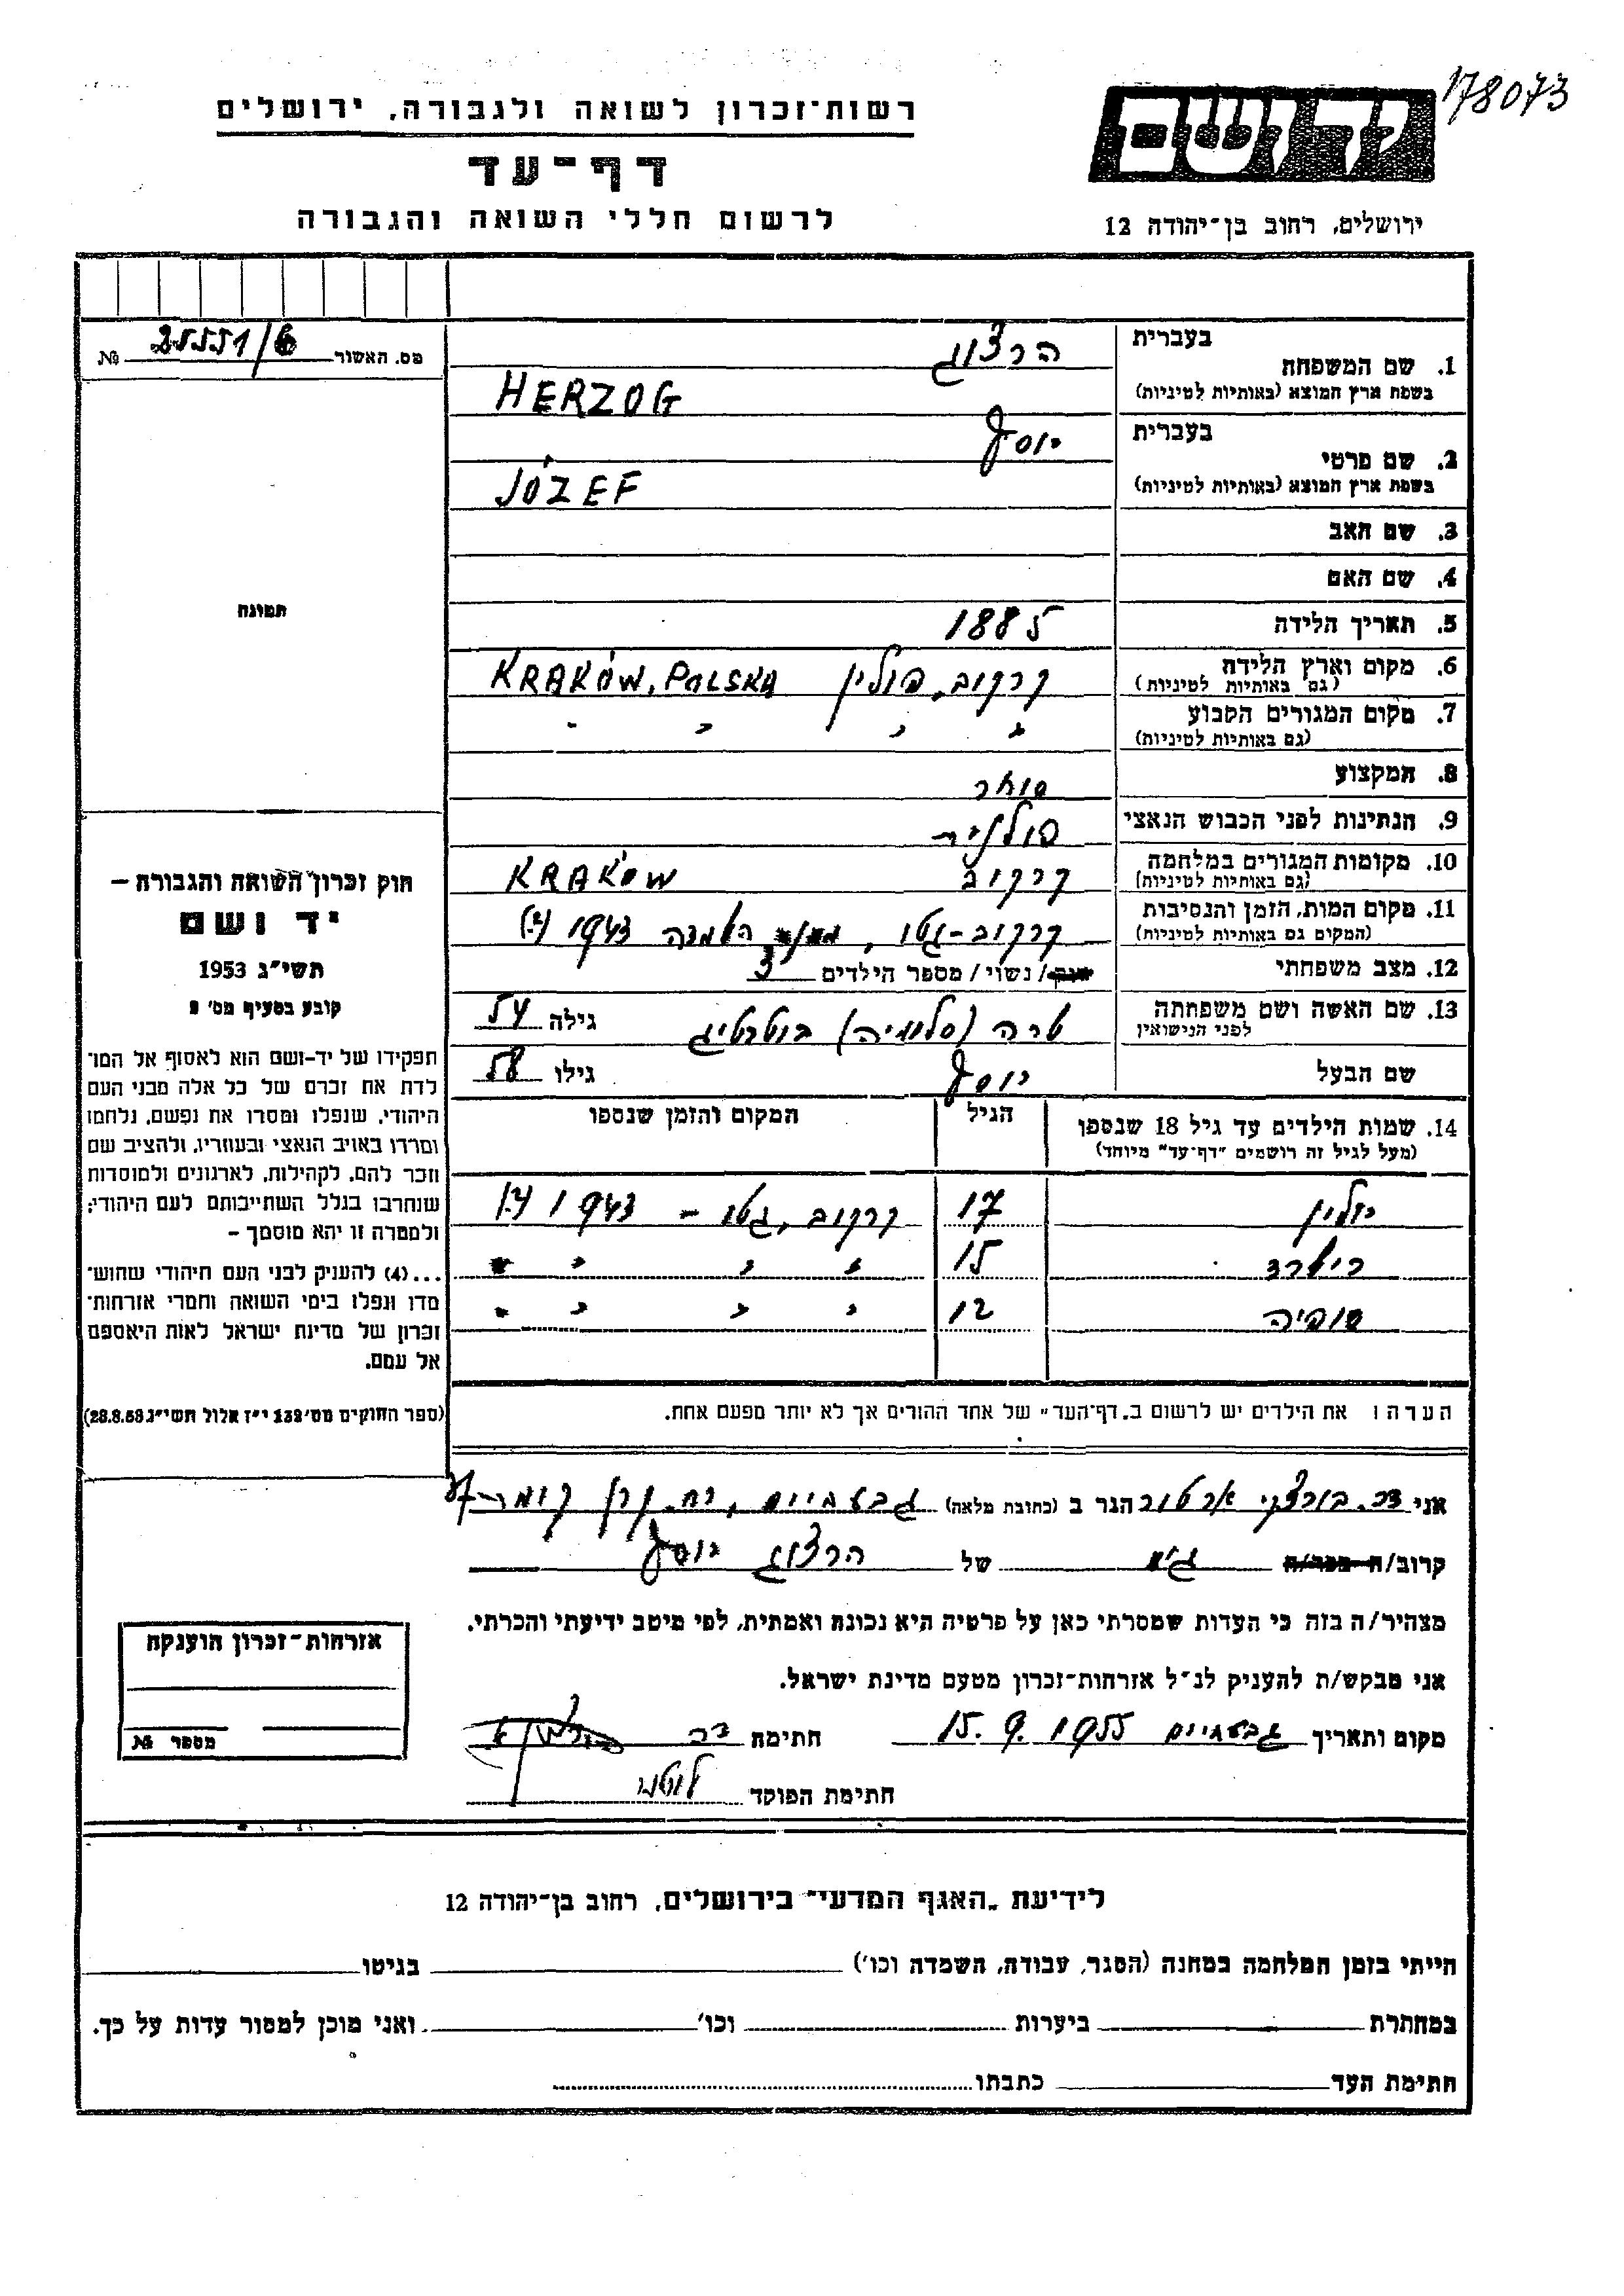 178073
יד ושם
רשות-זכרון לשואה ולגבורה, ירושלים
דף-עד
לרשום חללי השואה והגבורה
ירושלים, רחוב בן-יהודה 12
מס. האשור 25551/6 №
1. שם המשפחה בעברית הרצוג
בשפת ארץ המוצא (באותיות לטיניות) HERZOG
2. שם פרטי בעברית יוסף
בשפת ארץ המוצא (באותיות לטיניות) JÓZEF
3. שם האב
4. שם האם
5. תאריך הלידה 1885
6. מקום וארץ הלידה קרקוב, פולין KRAKÓW, POLSKA
(גם באותיות לטיניות)
7. מקום המגורים הקבוע " " " "
(גם באותיות לטיניות)
8. המקצוע סוחר
9. הנתינות לפני הכבוש הנאצי פולנית
10. מקומות המגורים במלחמה קרקוב KRAKÓW
(גם באותיות לטיניות)
11. מקום המות, הזמן והנסיבות קרקוב-גטו, השמדה 1943 (?)
(המקום גם באותיות לטיניות)
12. מצב משפחתי רוק / נשוי / מספר הילדים 3
13. שם האשה ושם משפחתה שרה (סלומיה) גילה 54
לפני הנישואין
שם הבעל יוסף גילו 58
14. שמות הילדים עד גיל 18 שנספו הגיל המקום והזמן שנספו
(מעל לגיל זה רושמים "דף-עד" מיוחד)
יולין 17 קרקוב, גטו - 1943 (?)
רישרד 15 " " " "
סופיה 12 " " " "
הערה: את הילדים יש לרשום ב"דף-העד" של אחד ההורים אך לא יותר מפעם אחת.
תמונה
חוק זכרון השואה והגבורה –
יד ושם
תשי"ג 1953
קובע בסעיף מס' 2
תפקידו של יד-ושם הוא לאסוף אל המו-
לדת את זכרם של כל אלה מבני העם
היהודי, שנפלו ומסרו את נפשם, נלחמו
ומרדו באויב הנאצי ובעוזריו, ולהציב שם
וזכר להם, לקהילות, לארגונים ולמוסדות
שנחרבו בגלל השתייכותם לעם היהודי;
ולמטרה זו יהא מוסמך –
...(4) להעניק לבני העם היהודי שהוש-
מדו ונפלו בימי השואה והמרי אזרחות-
זכרון של מדינת ישראל לאות היאספם
אל עמם.
(ספר החוקים מס' 132 י"ז אלול תשי"ג 28.8.53)
אני דר. בורצקי ארטור הגר ב (כתובת מלאה) גבעתיים, רח. קרן קימת
קרוב/ה מכר/ה גיס של הרצוג יוסף
מצהיר/ה בזה כי העדות שמסרתי כאן על פרטיה היא נכונה ואמתית, לפי מיטב ידיעתי והכרתי.
אני מבקש/ת להעניק לנ"ל אזרחות-זכרון מטעם מדינת ישראל.
מקום ותאריך גבעתיים 15.9.1955 חתימה דר
חתימת הפוקד
אזרחות-זכרון הוענקה
מספר №
לידיעת "האגף המדעי" בירושלים, רחוב בן-יהודה 12
הייתי בזמן המלחמה במחנה (הסגר, עבודה, השמדה וכו') בגיטו
במחתרת ביערות וכו' ואני מוכן למסור עדות על כך.
חתימת העד כתבתו